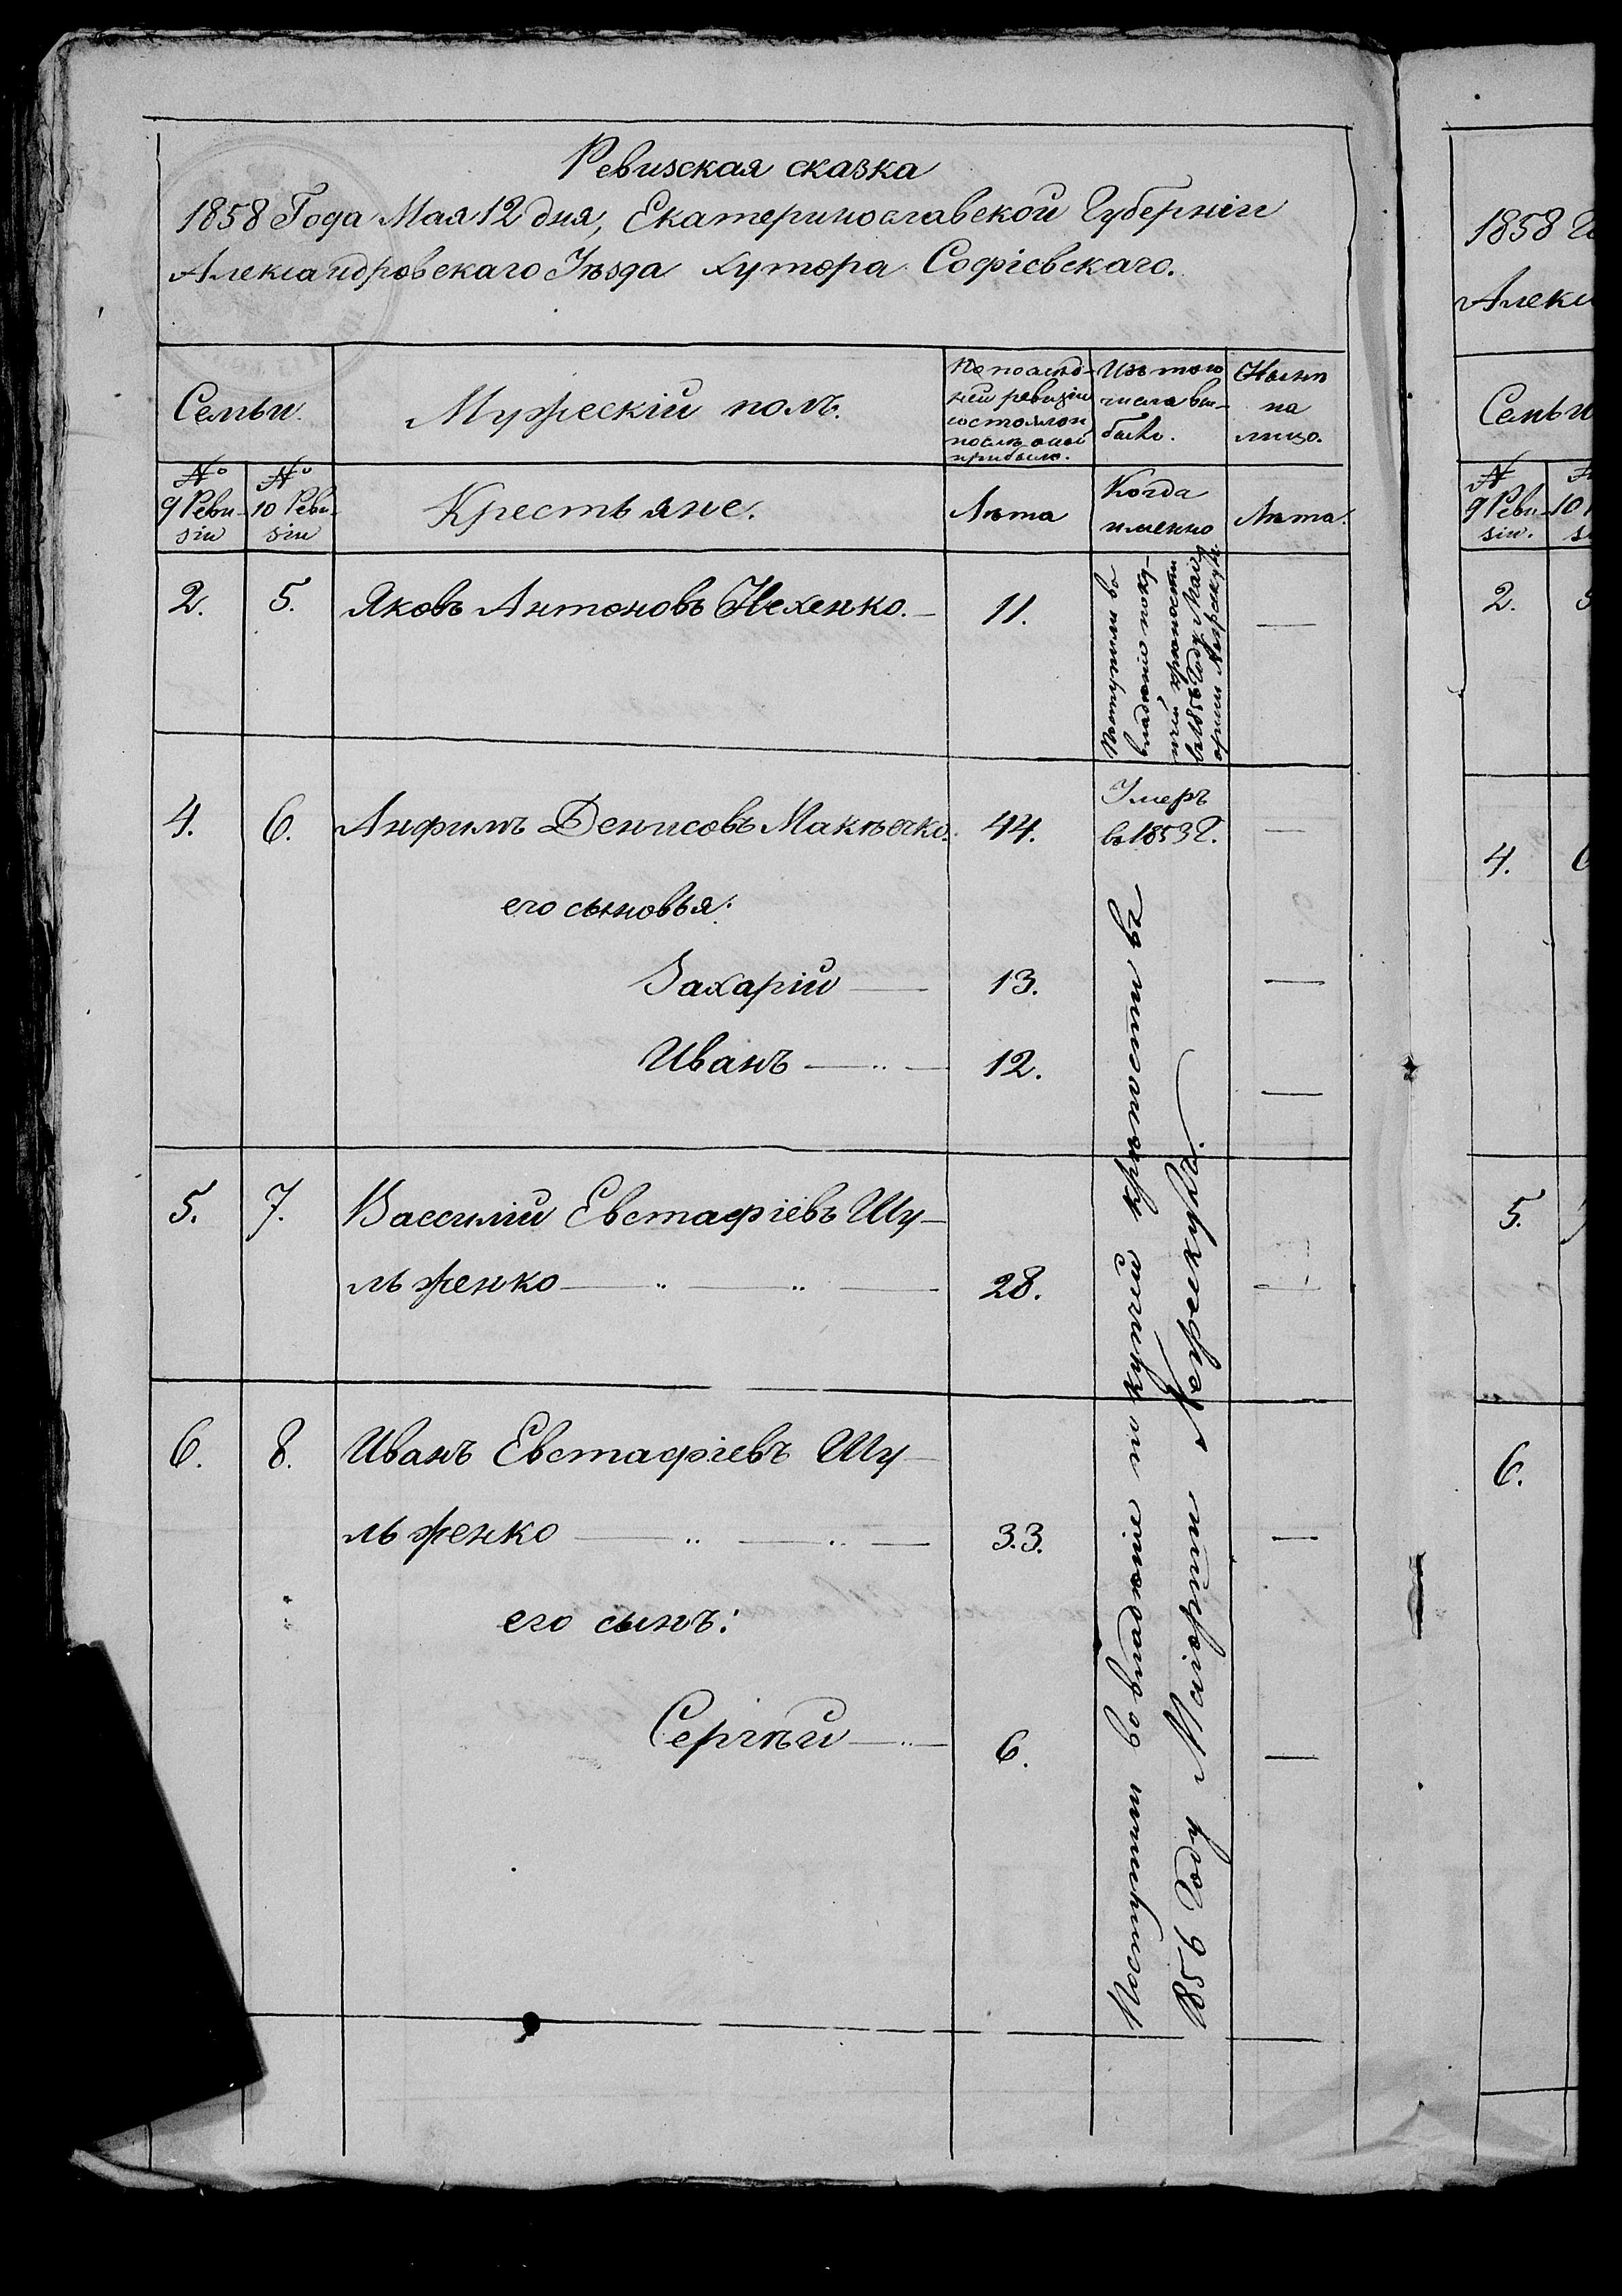 Ревизская сказка
1858 Года Мая 12 дня, Екатеринославской Губерніи
Александровскаго Уѣзда Хутора Софіевскаго.
Семьи.
Мужескій полъ.
По послѣд-
ней ревизіи
состояло и
послѣ оной
прибыло.
Изъ того
числа вы-
было.
Нынѣ
на
лицо.
№
9 Реви-
зіи
№
10 Реви-
зіи
Крестьяне.
Лѣта
Когда
именно
Лѣта.
2. 5. Яковъ Антоновъ Нехенко. 11.
Поступили во
владѣніе по куп-
чей крѣпости
въ 1853 Году Маіо
ріши Мерхелю
4. 6. Анфимъ Денисовъ Макѣечко. 44. Умеръ
въ 1853 Г.
его сыновья:
Захарій 13.
Иванъ 12.
5. 7. Вассилій Евстафіевъ Шу-
льженко 28.
6. 8. Иванъ Евстафіевъ Шу-
льженко 33.
его сынъ:
Сергѣй 6.
Поступили во владѣніе по купчей крѣпости въ
1856 Году
1858 Г
Алекс
Семьи
№
9 Реви-
зіи.
10
2.
4.
5.
6.